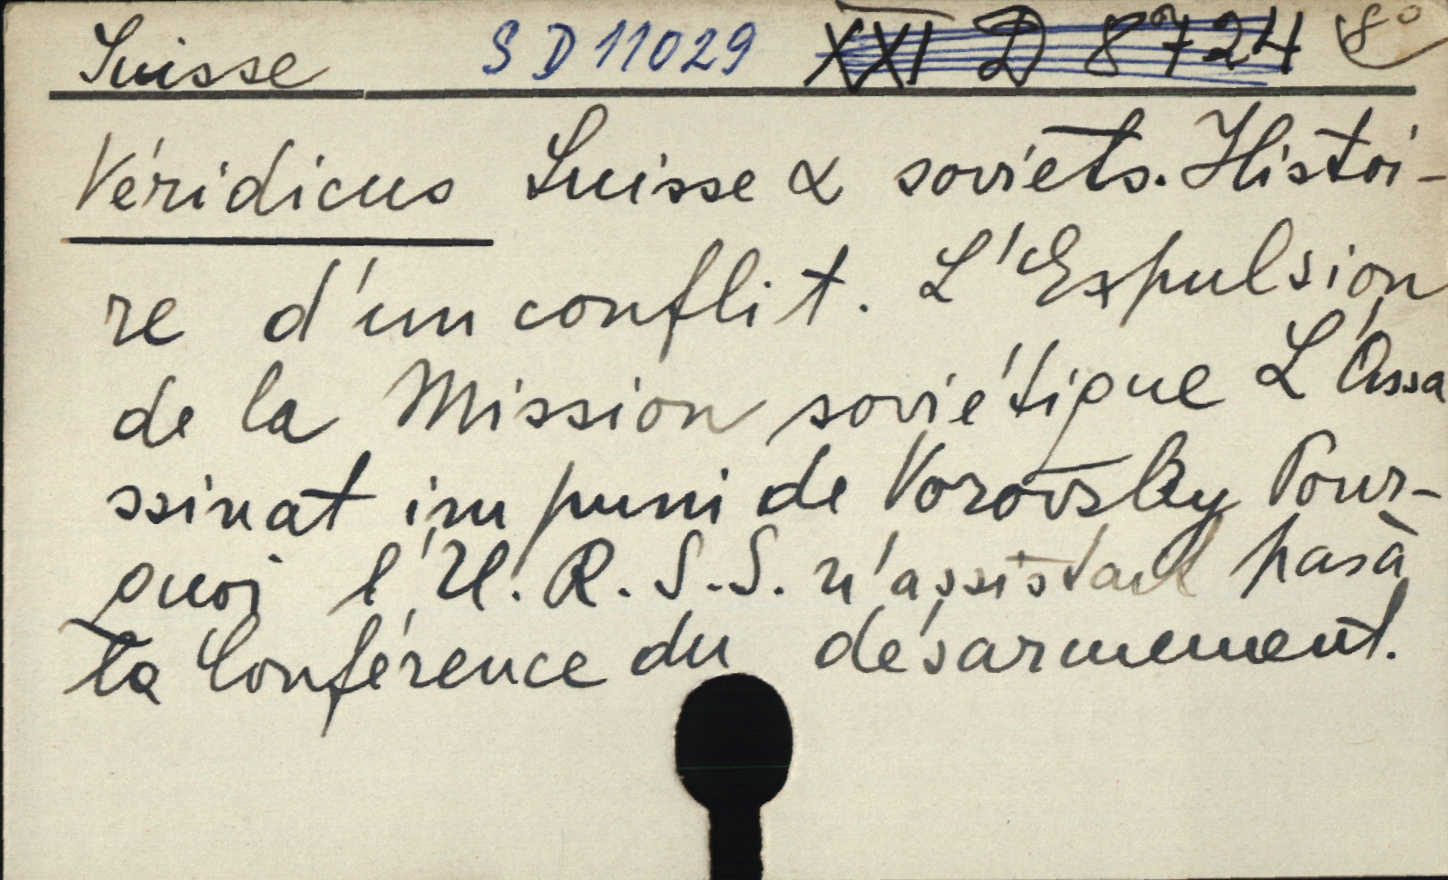 Suisse SD11029 XXI D 8724 8°
Véridicus Suisse & soviets. Histoi-
re d'un conflit. L'Expulsion
de la Mission soviétique L'Assa
ssinat impuni de Vorovsky Pour-
quoi l'U.R.S.S. n'assistait pas à
la Conférence du désarmement.